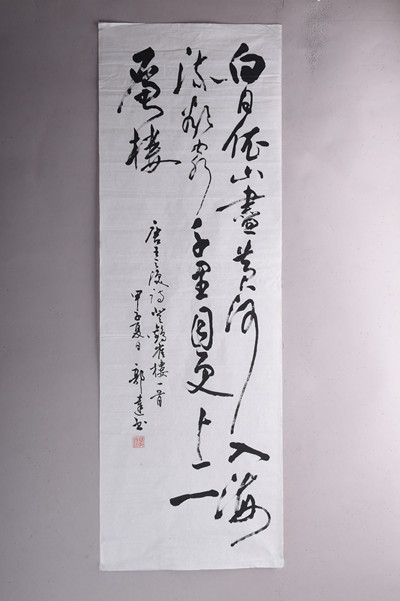 白日依山盡黃河入海
流欲窮千里目更上一
層樓
唐王之渙詩登鸛雀樓一首
甲子夏日郭達書